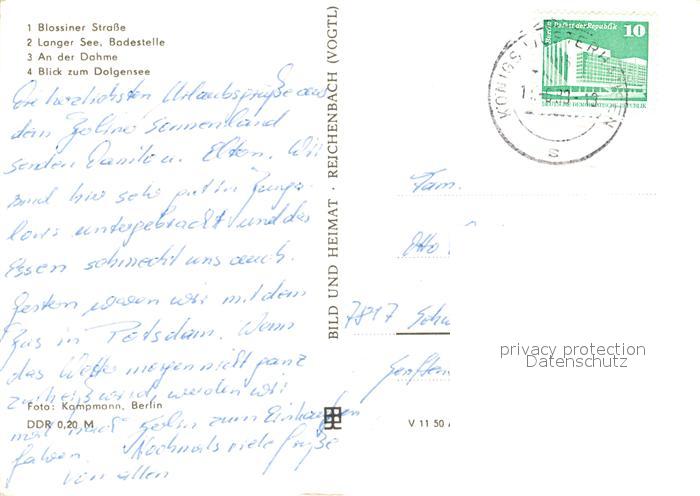 1 Blossiner Straße
2 Langer See, Badestelle
3 An der Dahme
4 Blick zum Dolgensee
Die herzlichsten Urlaubsgrüße aus
dem Sonnenland
senden Danilo u. Eltern. Wir
sind hier sehr gut in Bunga-
lows untergebracht und das
Essen schmeckt uns auch.
Gestern waren wir mit dem
Bus in Potsdam. Wenn
das Wetter morgen nicht ganz
zu heiß wird, werden wir
mal nach Berlin zum Einkaufen
fahren. Nochmals viele Grüße
von allen
Foto: Kampmann, Berlin
DDR 0,20 M
BILD UND HEIMAT · REICHENBACH (VOGTL)
V 11 50
Berlin Palast der Republik
10
DEUTSCHE DEMOKRATISCHE REPUBLIK
KÖNIGS WUSTERHAUSEN
s
Fam.
Otto
7817
Senften
privacy protection
Datenschutz